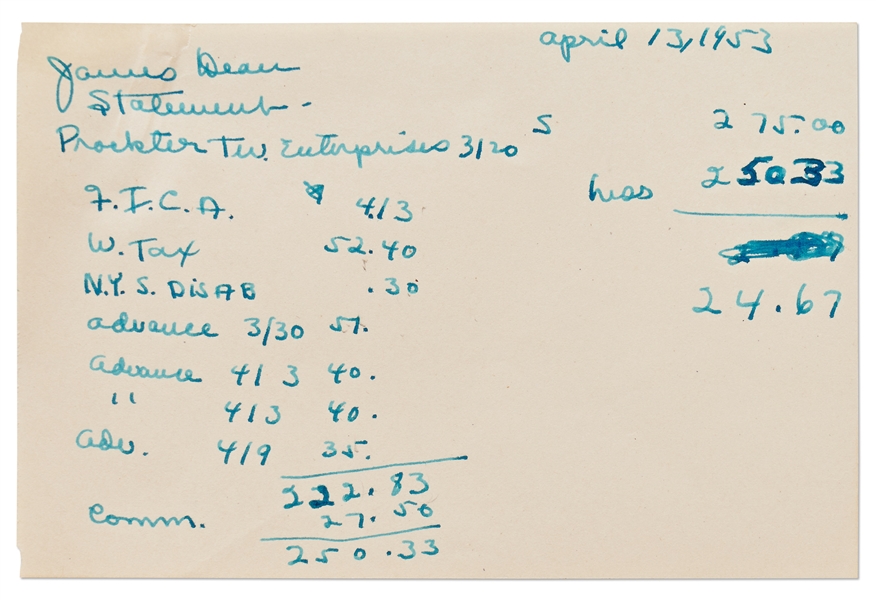 april 13, 1953
James Dean
Statement -
Prockter T.V. Enterprises 3/20 $ 275.00
F.I.C.A. $ 4.13 less 250.33
W. Tax 52.40
N.Y.S. DISAB .30 24.67
advance 3/30 51.
advance 4/3 40.
" 4/3 40.
adv. 4/9 35.
222.83
Comm. 27.50
250.33